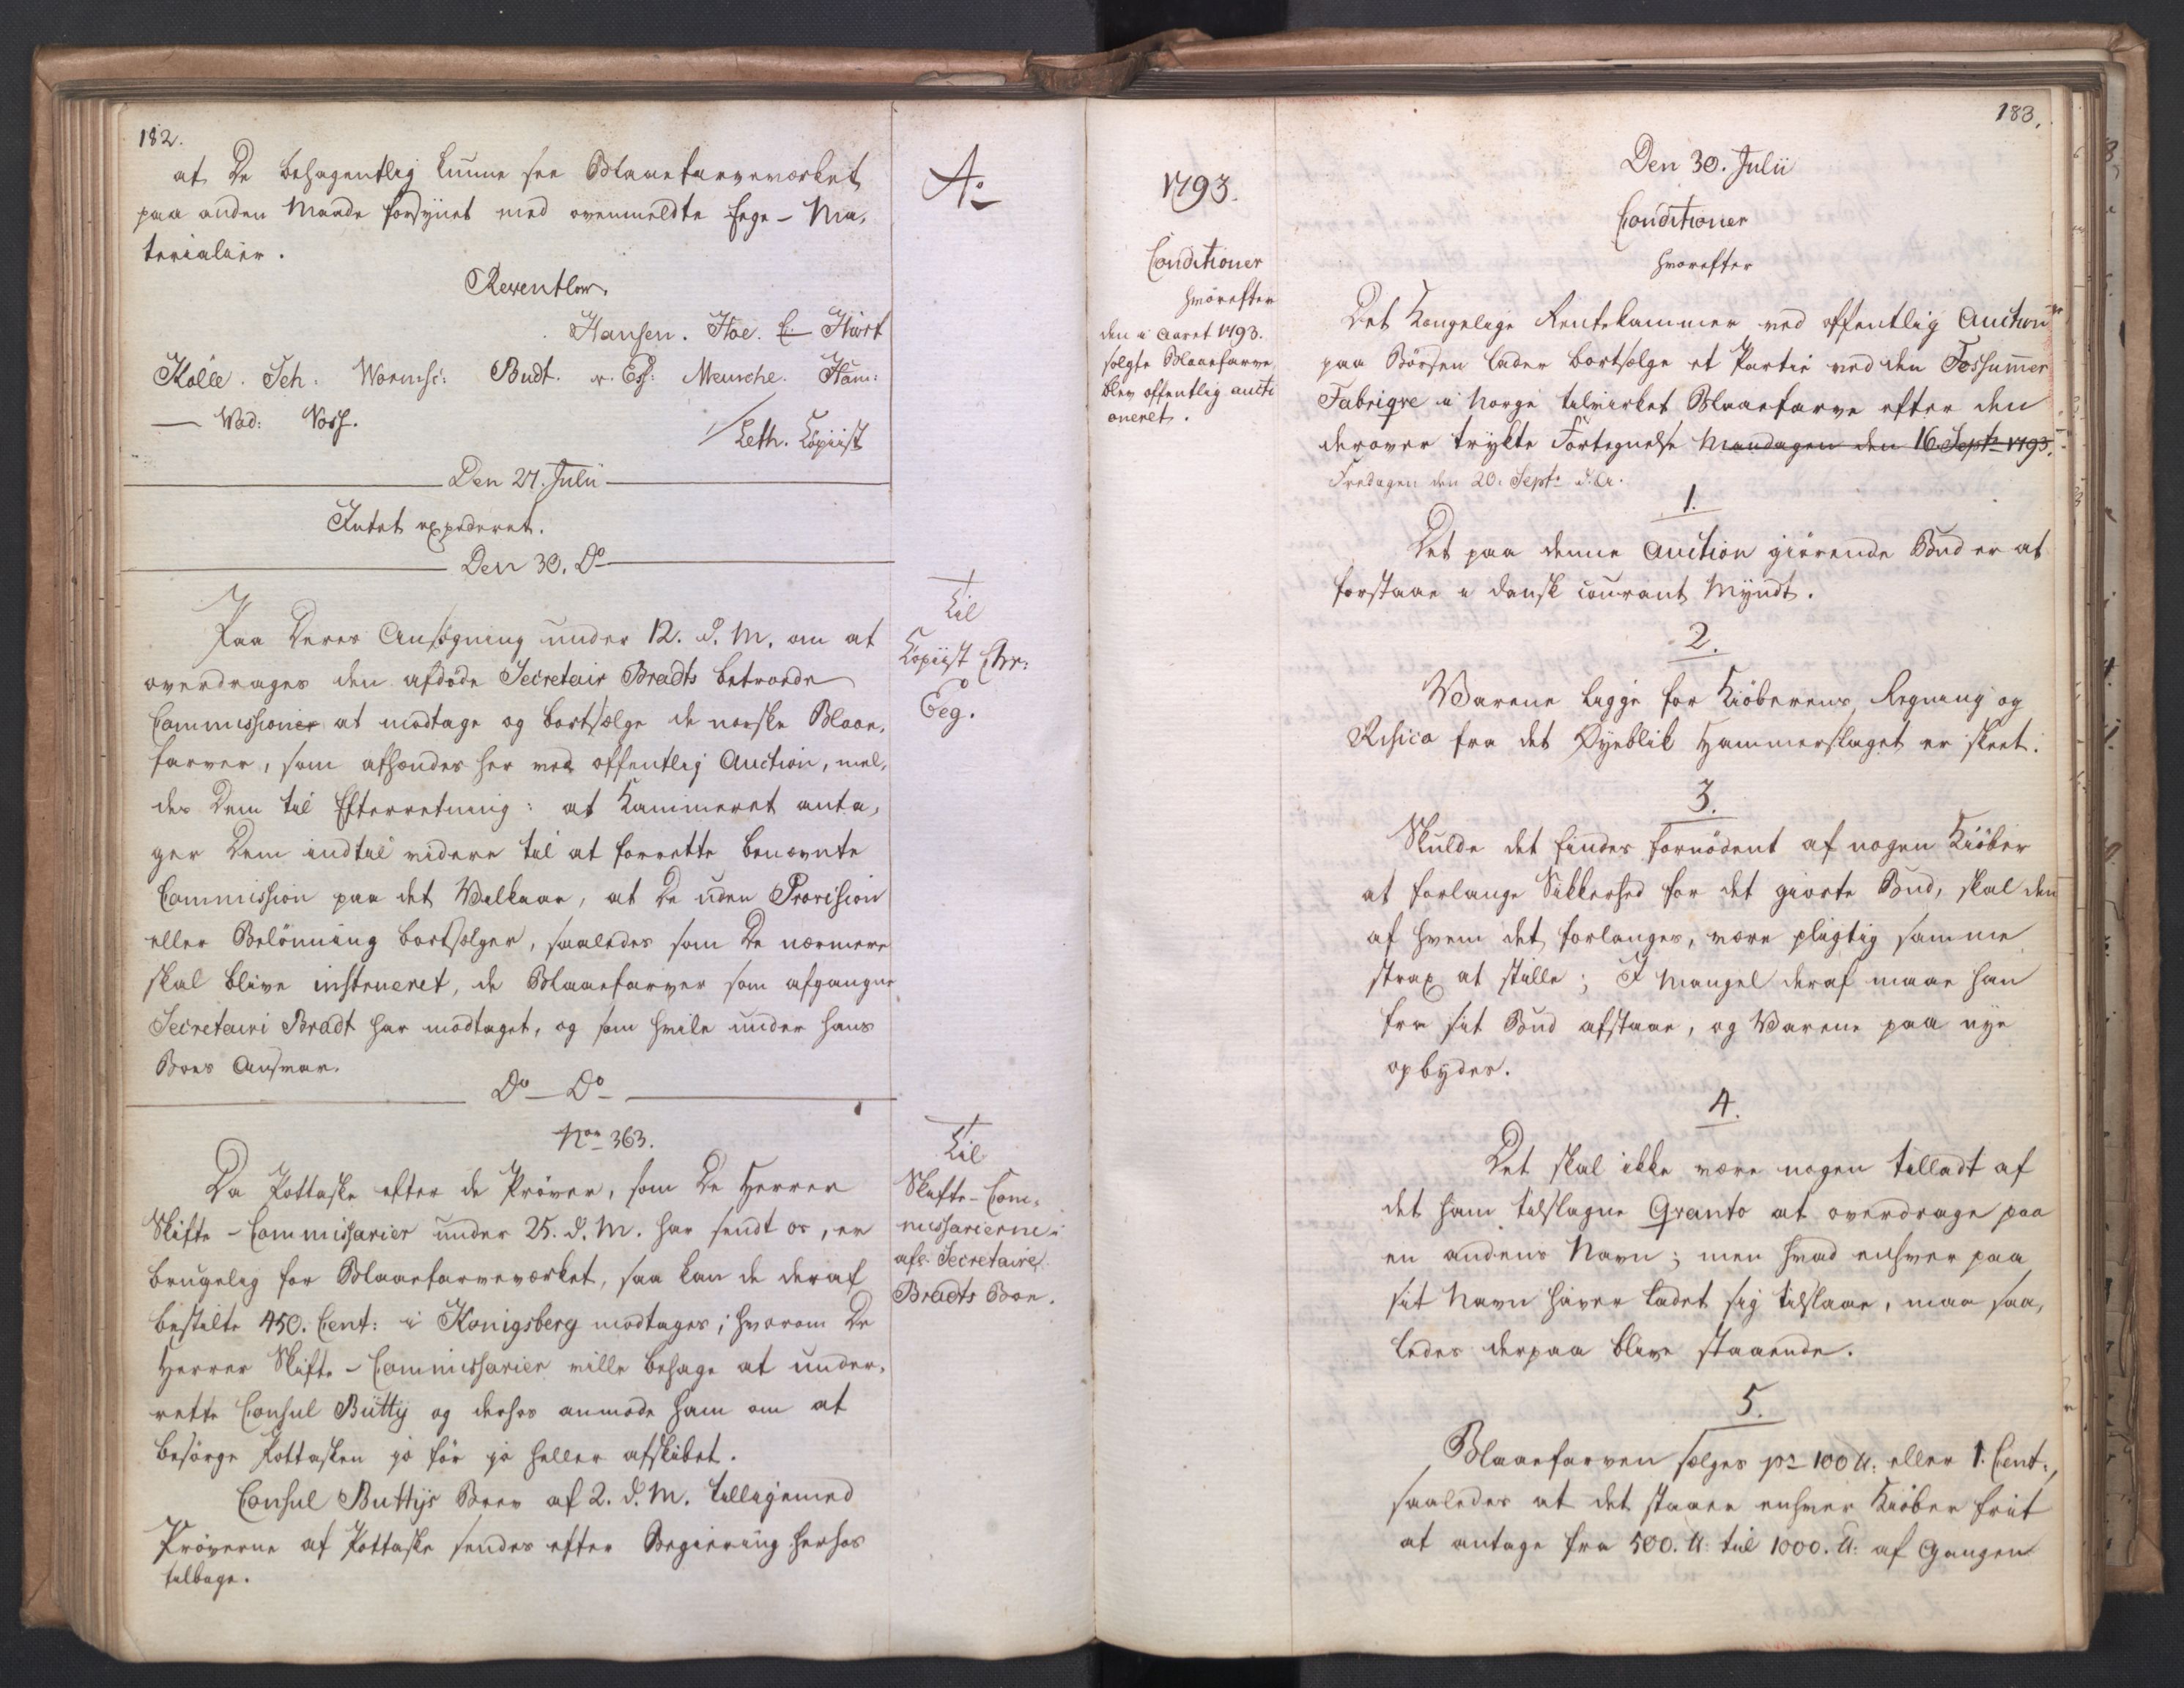 182.
at De behagentlig kunne see Blaaefarveværket
paa anden Maade forsÿnet med ovenmeldte Ege-Ma-
terialier.
Reventlow.
Hansen. Hoe. C. Hurt
Kølle. Sch. Wormsc: Budt. v. Ess: Meusche. Ham:
Wad: Voss.
/Leth. Copiist
Den 27. Julii
Intet expederet.
Den 30. Do
Paa Deres Ansøgning under 12. d. M. om at
overdrages den afdøde Secretair Bradts betroede
Commissioner at modtage og bortsælge de norske Blaae-
farver, som afhændes her ved offentlig Auction, mel-
des Dem til Efterretning: at Kammeret anta-
ger Dem indtil videre til at forrette benævnte
Commission paa det Vilkaar, at De uden Provision
eller Belønning bortsælger, saaledes som De nærmere
skal blive instrueret, de Blaaefarver som afgangne
Secretairi Bradt har modtaget, og som hvile under hans
Boes Ansvar.
Do Do
Nor 363.
Da Pottaske efter de Prøver, som De Herrer
Skifte-Commissarier under 25. d. M. har sendt os, er
brugelig for Blaaefarveværket, saa kan de deraf
bestilte 450. Cent: i Königsberg modtages; hvorom De
Herrer Skifte-Commissarier ville behage at under-
rette Consul Büttÿ og derhos anmode ham om at
besørge Pottasken jo før jo heller afskibet.
Consul Buttÿs Brev af 2. d. M. tilligemed
Prøverne af Pottaske sendes efter Begiering herhos
tilbage.
Ao
Til
Copiist Chr:
Eeg.
Til
Skifte-Com-
missarierne i
afg. Secretaire
Bradts Boe.
1793.
Conditioner
hvorefter
den i Aaret 1793.
solgte Blaaefarve
blev offentlig aucti
oneret.
183.
Den 30. Julii
Conditioner
hvorefter
Det Kongelige Rentekammer ved offentlig Auction
paa Børsen lader bortsælge et Partie ved den Fossumer
Fabriqve i Norge tilvirket Blaaefarve efter den
derover trykte Fortegnelse Mandagen den 16 Septr 1793.
Fredagen den 20. Septr d. A.
1.
Det paa denne Auction giørende Bud er at
forstaae i dansk courant Mÿndt.
2.
Varene ligge for Kiøberens Regning og
Risico fra det Øÿeblik Hammerslaget er skeet.
3.
Skulde det findes fornødent af nogen Kiøber
at forlange Sikkerhed for det giorte Bud, skal den
af hvem det forlanges, være pligtig samme
strax at stille; I Mangel deraf maae han
fra sit Bud afstaae, og Varene paa nye
opbydes.
4.
Det skal ikke være nogen tilladt af
det ham tilslagne Qvanto at overdrage paa
en andens Navn; men hvad enhver paa
sit Navn haver ladet sig tilslaae, maa saa-
ledes derpaa blive staaende.
5.
Blaaefarven sælges pr 100 ℔: eller 1. Cent:,
saaledes at det staaer enhver Kiøber frit
at antage fra 500. ℔: til 1000. ℔: af Gangen